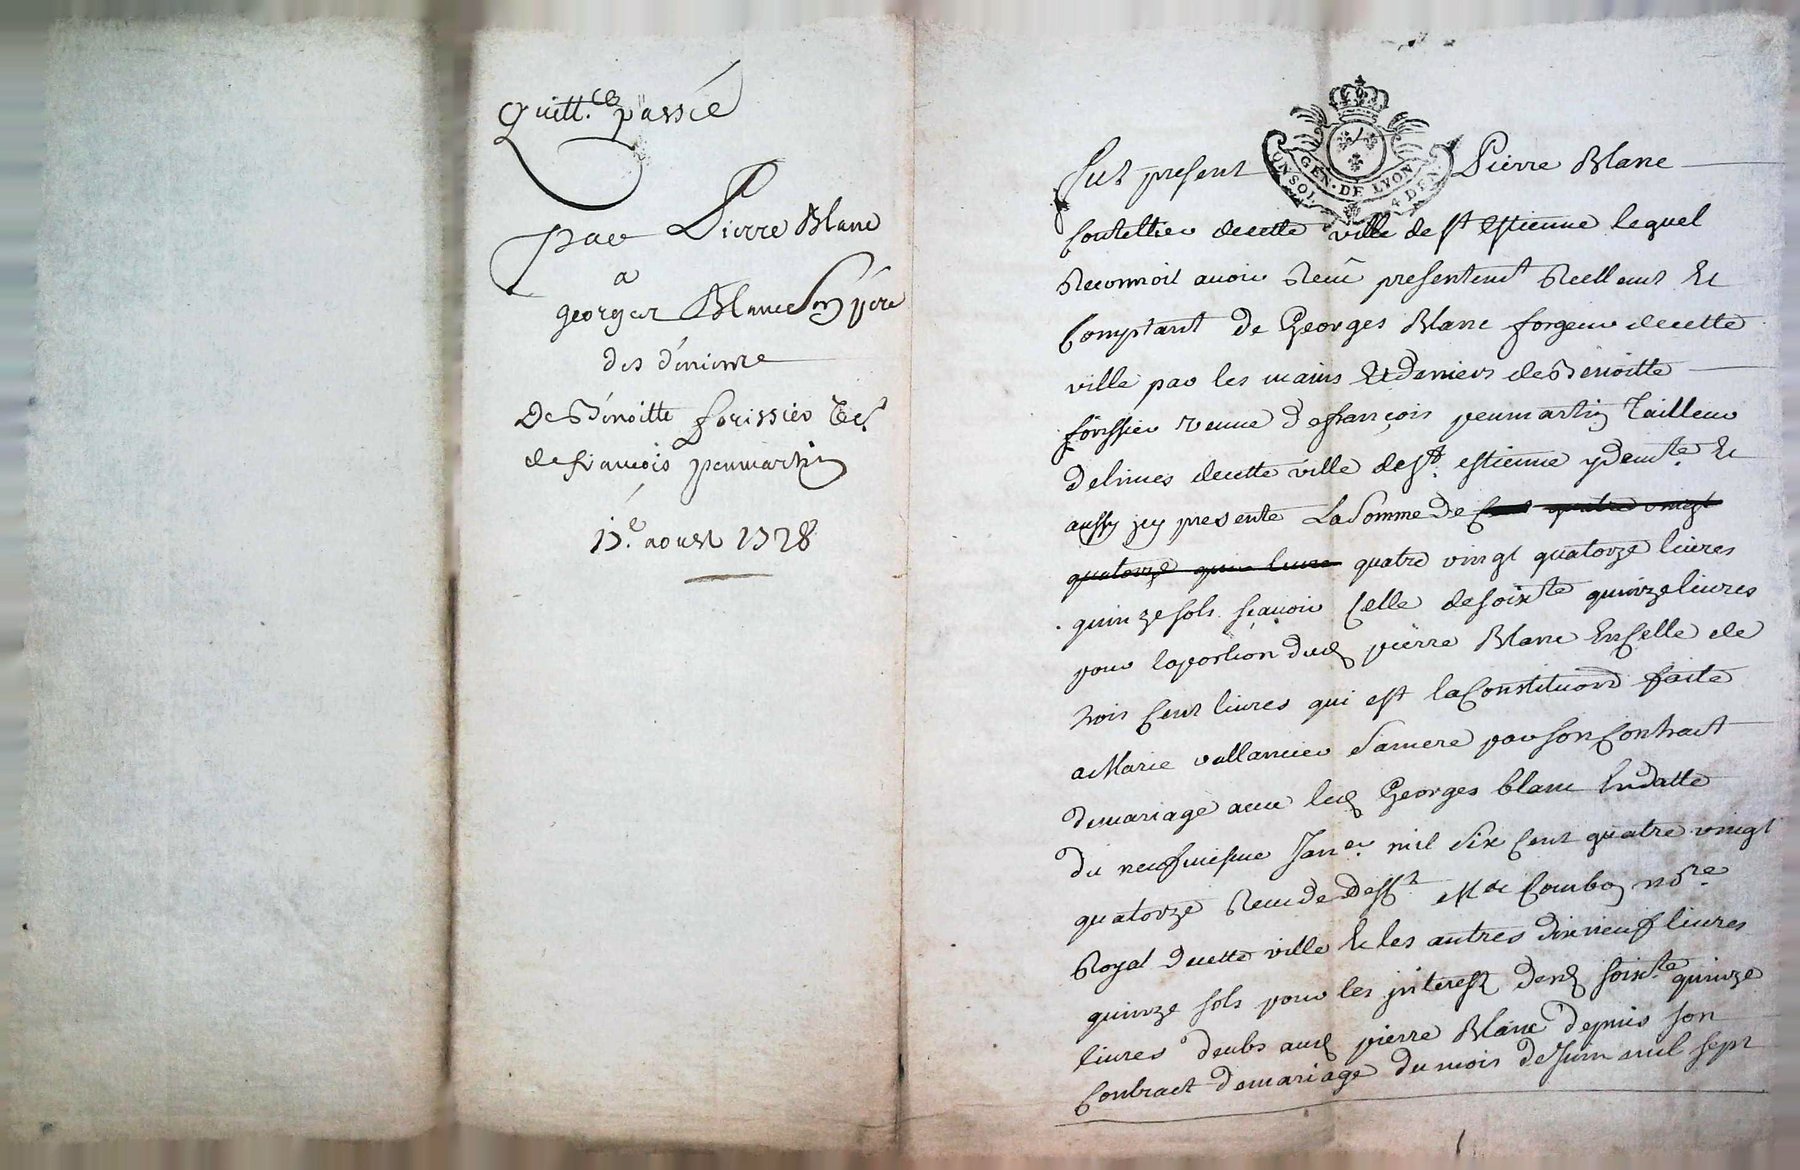 Quitt.ce passée
par Pierre Blanc
a
georges Blanc Son pére
des déniers
De Bénoitte forissier ve.
de francois peumartin
15.e aoust 1728
Fut present Pierre Blanc
GEN. DE LYON
4 DEN.
Coutellier decette ville de St Estienne lequel
Reconnoit avoir Receu presentemt Reellemt Et
Comptant de Georges Blanc forgeur decette
ville par les mains Et deniers de Benoitte
forissier veuve de françois peumartin Tailleur
delimes decette ville de St. estienne ydemte. Et
aussy icy presente La Somme de Cent quatre vingt
quatorze livres quatre vingt quatorze livres
quinze sols scavoir Celle de soixte quinze livres
pour la portion dud pierre Blanc En Celle de
trois Cent livres qui est la Constitution faite
a Marie vallancier Sa mere par son Contract
de mariage avec led Georges blanc En datte
du neufviesme Janer. mil Six Cent quatre vingt
quatorze Receu de deft Me de Courbon nore.
Royal decette ville Et les autres dix neuf livres
quinze sols pour les jnterest desd soixte. quinze
livres deubs aud pierre Blanc depuis son
Contract de mariage du mois de Juin mil sept